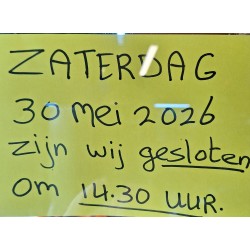 ZATERDAG
30 mei 2026
zijn wij gesloten
om 14.30 uur.